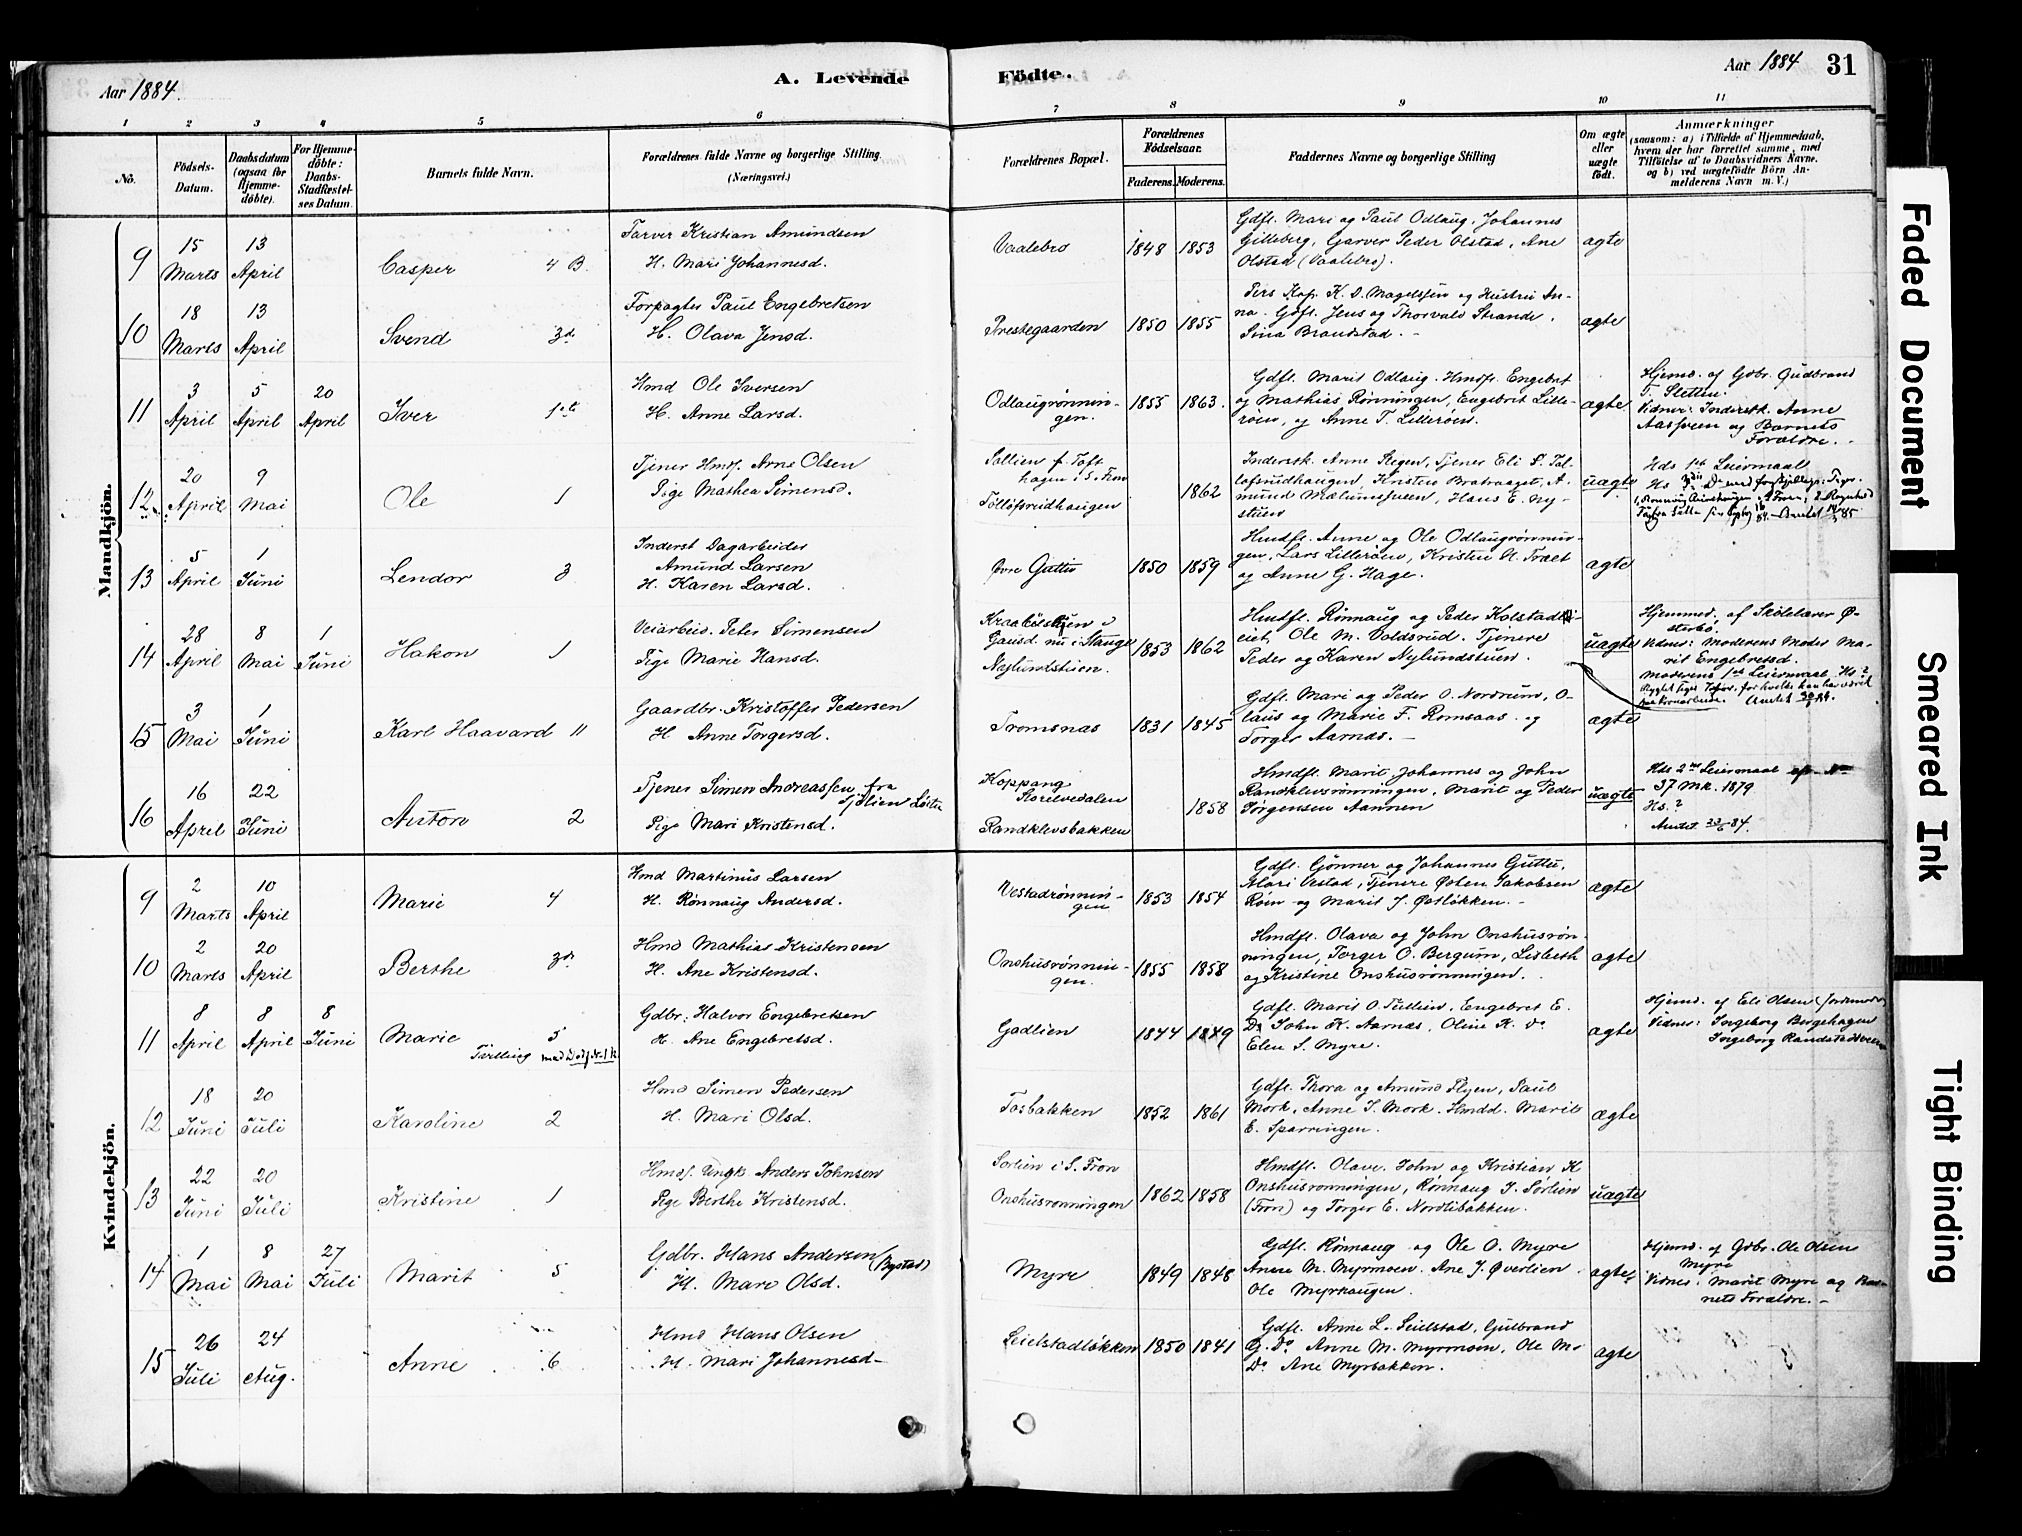 Aar 1884.
A. Levende
Födte.
Aar 1884
31
1 2 3 4 5 6 7 8 9 10 11
No.
Födsels-
Datum.
Daabsdatum
(ogsaa for
Hjemme-
döbte).
For Hjemme-
döbte:
Daabs-
Stadfæstel-
ses Datum.
Barnets fulde Navn.
Forældrenes fulde Navne og borgerlige Stilling.
(Næringsvei.)
Forældrenes Bopæl.
Forældrenes
Födselsaar.
Faderens. Moderens.
Faddernes Navne og borgerlige Stilling
Om ægte
eller
uægte
födt.
Anmærkninger
(saasom: a) i Tilfælde af Hjemmedaab,
hvem der har forrettet samme, med
Tilföielse af to Daabsvidners Navne,
og b) ved uægtefödte Börn An-
melderens Navn m. V.)
Mandkjön.
9
15 Marts
13 April
Casper 4 B.
Garver Kristian Amundsen
H. Mari Johannesd.
Vaalebro
1848 1853
Gdfl. Mari og Paul Odlaug, Johannes
Gilleberg, Garver Peder Olstad, Ane
Olstad (Vaalebro).
ægte
10
18 Marts
13 April
Svend 3d.
Forpagter Paul Engebretsen
H. Olava Jensd.
Prestegaarden
1850 1855
Pers. Kap. K. D. Magelssen og Hustru An-
na. Gdfl. Jens og Thorvald Strande.
Sina Brandstad.
ægte
11
3 April
5 April
20 April
Iver 1ste
Hmd Ole Iversen
H. Anne Larsd.
Odlaugrønnin-
gen.
1855 1863.
Gdfl. Marit Odlaug. Hmdfl. Engebret
og Mathias Rønningen, Engebret Lille-
røen, og Anne T. Lillerøen.
ægte
Hjemd. af Gdbr. Gudbrand
T. Sletten.
Vidner: Inderstk. Anne
Aasveen og Barnets
Forældre.
12
20 April
9 Mai
Ole 1
Tjener Hmds. Arne Olsen
Pige Mathea Simensd.
Sollien p. Toft
hagen i S. Fron
Tollofsrudhaugen
1862
Inderstk. Anne Stegen, Tjener Eli S. Tol-
lofsrudhaugen, Kristen Bratvaaget, A-
mund Mælumstuen, Hans E. Ny-
stuen
uægte
Hds 1ste Leiermaal
Hs
13
5 April
1 Juni
Lendor 3
Inderst Dagarbeider
Amund Larsen
H. Karen Larsd.
øvre Guttu
1850 1859
Hmdfl. Anne og Ole Odlaugrønnin-
gen, Lars Lillerøen, Kristen A. Træet
og Anne G. Hage.
ægte
14
28 April
8 Mai
1 Juni
Hakon 1
Veiarbeid. Peter Simensen
Pige Marie Hansd.
Kraabølstuen i
Gausd. nu i Stange
Nylundstuen.
1853 1862
Hmdfl. Rønnaug og Peder Kolstad-
eiet, Ole M. Voldsrud. Tjenere
Peder og Karen Nylundstuen.
uægte
Hjemmed. af Skolelærer Ø-
sterbø.
Vidner: Moderens Moder Ma-
rit Engebretsd.
Moderens 1ste Leiermaal. Hs?
15
3 Mai
1 Juni
Karl Haavard 11
Gaardbr. Kristoffer Pedersen
H. Anne Torgersd.
Tromsnæs
1831 1845
Gdfl. Mari og Peder O. Nordrum, O-
laus og Marie F. Romsaas og
Torger Aarnæs.
ægte
16
16 April
22 Juni
Anton 2
Tjener Simen Andreassen fra
Pige Mari Kristensd.
Koppang
Storelvedalen
Randklevsbakken
1858
Hmdfl. Marit Johannes og John
Randklevsrønningen, Marit og Peder
Jørgensen Aannen
uægte
Hds 2det Leiermaal
37 Mk. 1879
Hs.?
Anmt. 22/6 84.
Kvindekjön.
9
2 Marts
10 April
Marie 4
Hmd Martinus Larsen
H. Rønnaug Andersd.
Vestadrønnin-
gen
1853 1854
Gdfl. Gønner og Johannes Guttu,
Mari Vestad, Tjenere Østen Jakobsen
Røen og Marit J. Østløkken.
ægte
10
2 Marts
20 April
Berthe 3de
Hmd Mathias Kristensen
H. Ane Kristensd.
Onshusrønnin-
gen.
1855 1858
Hmdfl. Olava og John Onshusrøn-
ningen, Torger O. Bergum, Lisbeth
og Kristine Onshusrønningen.
ægte
11
8 April
8 April
8 Juni
Marie 5
Tvilling
Gdbr. Halvor Engebretsen
H. Ane Engebretsd.
Gadlien
1844 1849
Gdfl. Marit O Tullien, Engebret E.
Do John K. Aarnæs, Oline K. do
Elen S. Myre.
ægte
Hjemd. af Eli Olsen (Jordmoder)
Vidner: Ingeborg Bergehagen
Ingeborg Randstadveen
12
18 Juni
20 Juli
Karoline 2
Hmd Simen Pedersen
H. Mari Olsd.
Tosbakken
1852 1861
Gdfl. Thora og Amund Flyen, Paul
Mork, Anne S. Mork. Hmdd. Marie
E. Sparringen.
ægte
13
22 Juni
20 Juli
Kristine 1
Hmds. Ungk. Anders Johnsen
Pige Berthe Kristensd.
Sørlien i S. Fron
Onshusrønningen
1862 1858
Hmdfl. Olave. John og Kristian K
Onshusrønningen, Rønnaug J. Sørlien
(Fron) og Torger E. Nordlibakken.
uægte
14
1 Mai
8 Mai
27 Juli
Marit 5
Gdbr. Hans Andersen (Bystad)
H. Mare Olsd.
Myre
1849 1848
Gdfl. Rønnaug og Ole O. Myre
Anne M. Myrmoen. Ane J. Øverlien.
Ole Myrhaugen.
ægte
Hjemd. af Gdbr. Ole Olsen
Myre
Vidner: Marit Myre og Bar-
nets Forældre.
15
26 Juli
24 Aug.
Anne 6
Hmd Hans Olsen
H. Mari Johannesd
Seielstadløkken
1850 1841
Gdfl. Anne L. Seielstad, Gulbrand
G. Do Anne M. Myrmoen, Ole M.
Do Ane Myrbakken.
ægte
Faded Document
Smeared Ink
Tight Binding